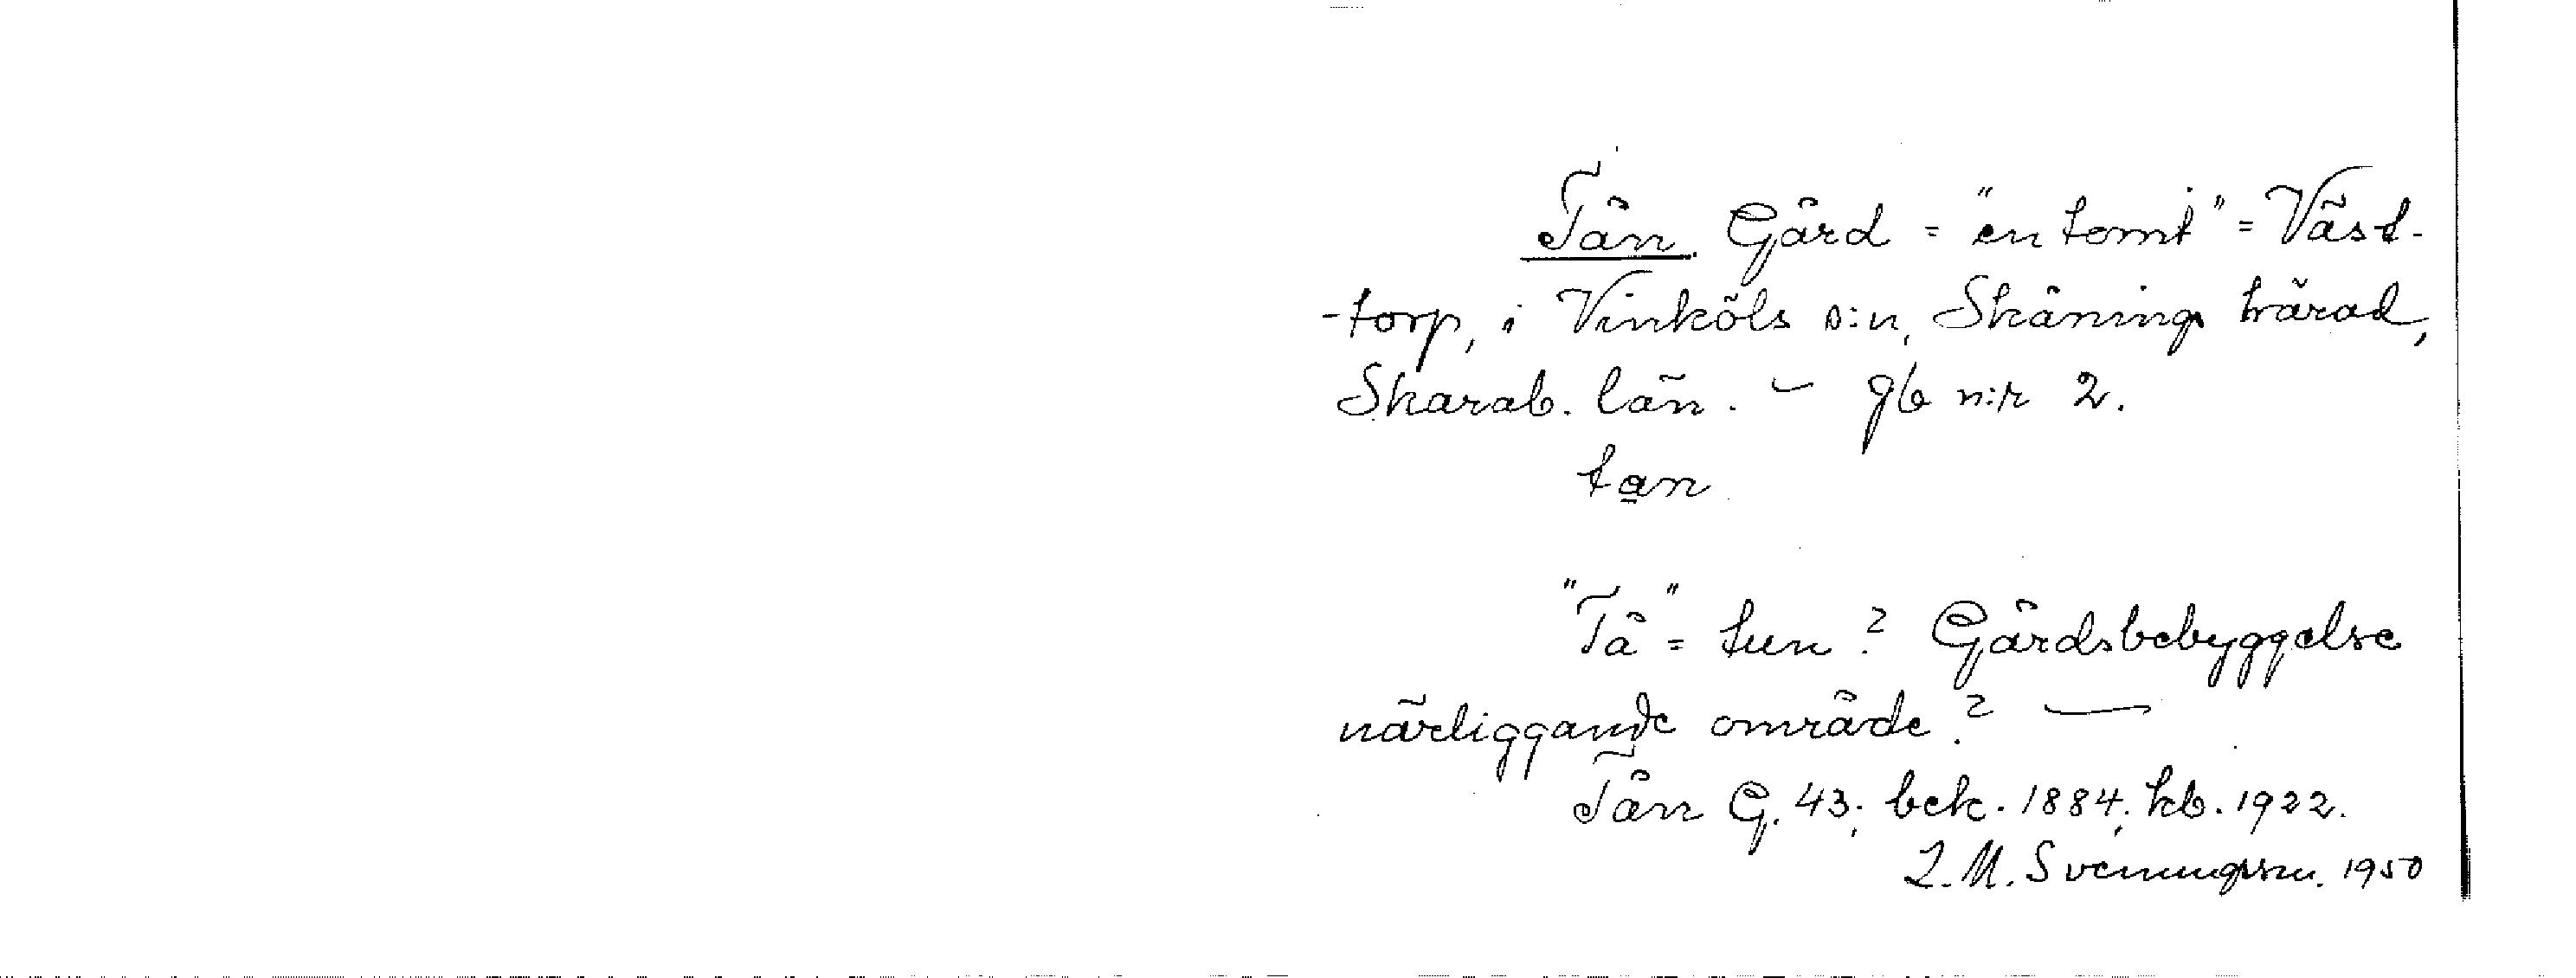 Tån. Gård = "en tomt" = Väst-
-torp, i Vinköls s:n, Skånings härad,
Skarab. län. – gb n:r 2.
tan
"Tå" = tun? Gårdsbebyggelse
närliggande område? —
Tån G. 43; bek. 1884; kb. 1922.
L.M. Svenungsson. 1950